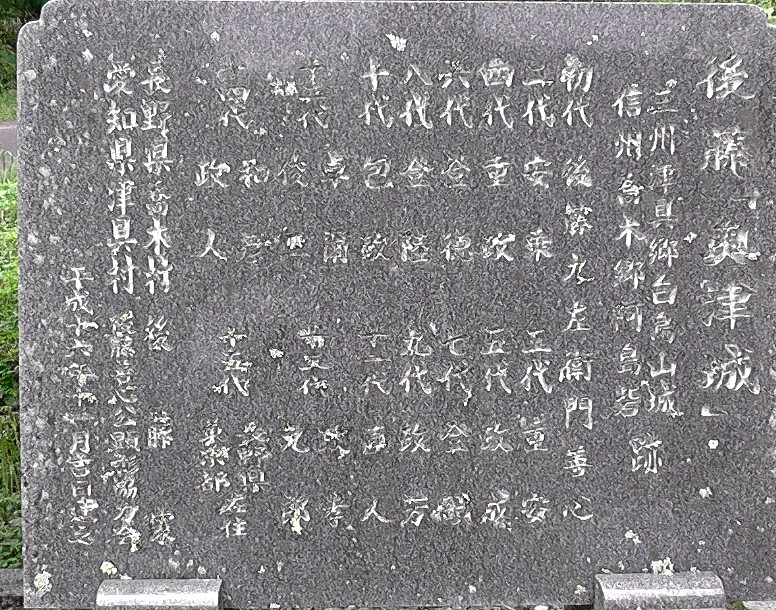 後藤「奥津城」
三州津具郷白鳥山城
信州喬木郷阿島砦 跡
初代 後藤九左衛門善心
二代 安乗 三代 重安
四代 重政 五代 政成
六代 登徳 七代 登
八代 登陸 九代 政方
十代 包政 十一代 直人
十二代 卓爾 十三代 孝
俊 九郎
十四代 和 十五代 長野県 在住
政人
長野県喬木村 後藤家
愛知県津具村 後藤善心公顕彰協力会
平成十六年十一月吉日建之